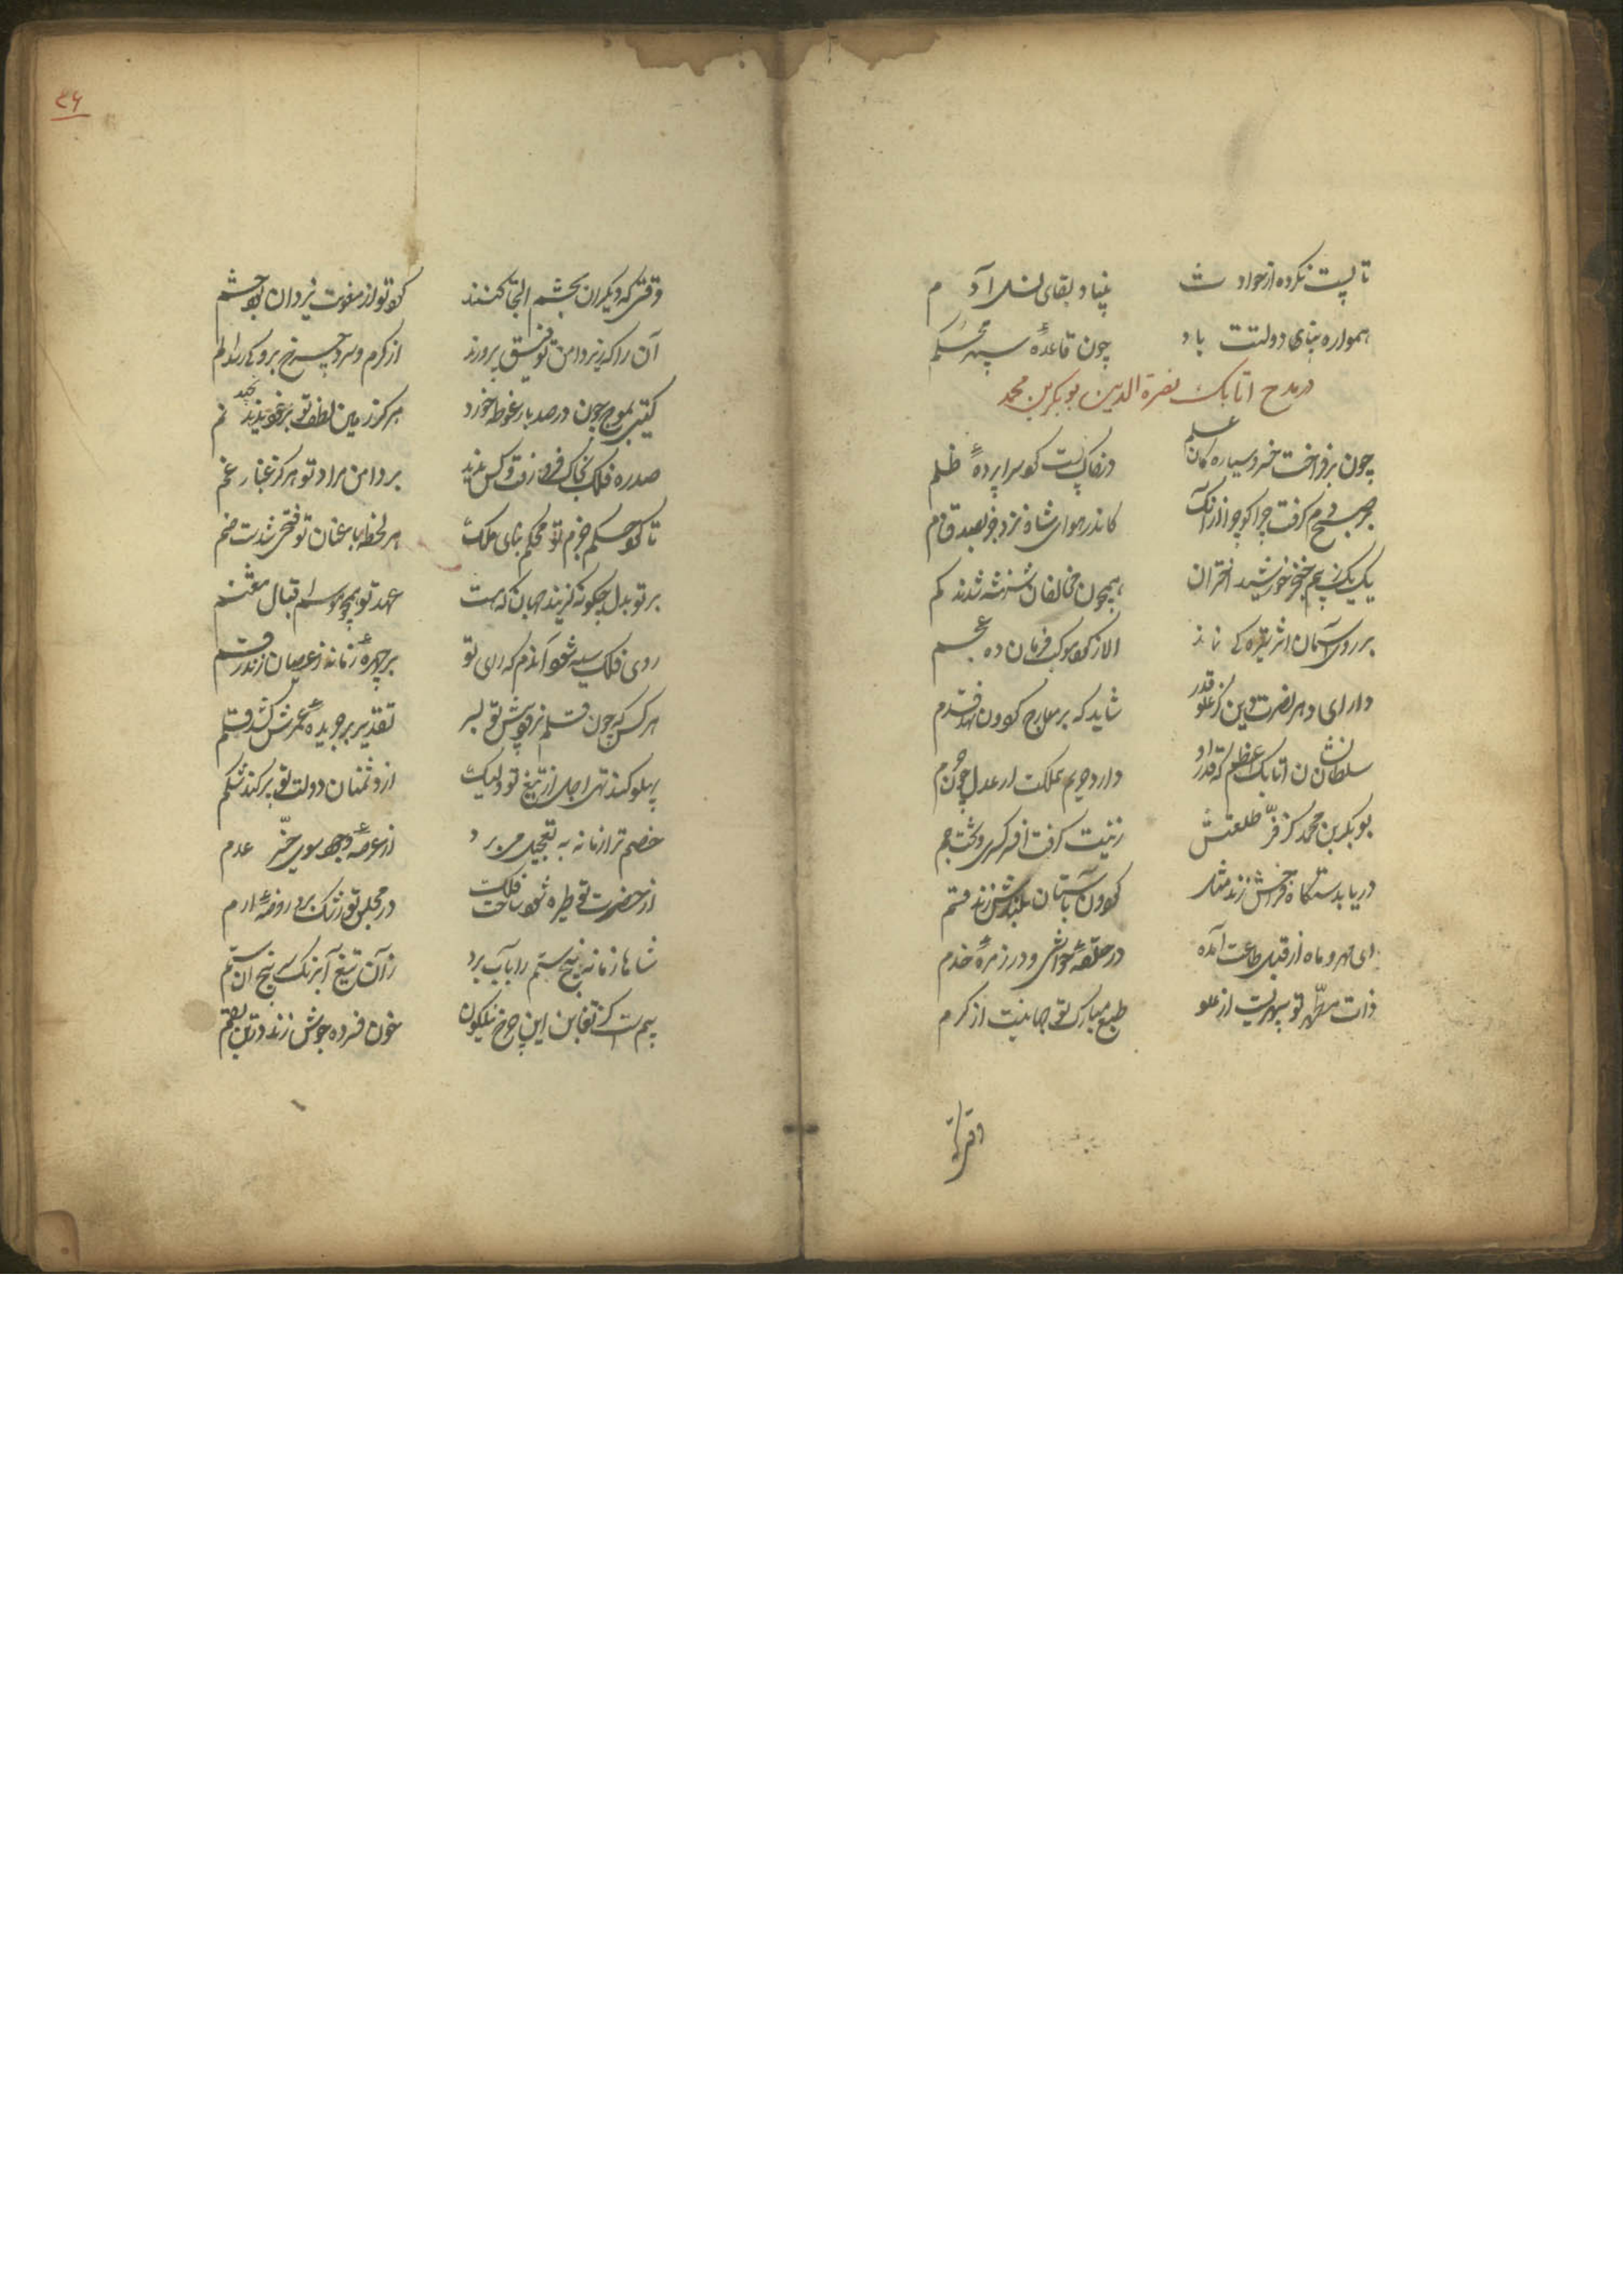 تا پست نکرده از حوادث بنیاد بقای نسل آدم
همواره بنای دولتت باد چون قاعدهٔ سپهر محکم
در مدح اتابک نصرة الدین بوبکر بن محمد
چون برفراخت خسرو سیارگان علم در خاک پست کو سراپردهٔ ظلم
جرم گرفت چرا کو چو کاندر هوای شاه نزد جز بصدق دم
یک یک ز بیم خنجر خورشید اختران همچون مخالفان شهنشه شدند کم
بر روی آسمان اثر تیرگی نماند الا ز کرد موکب فرمان ده عجم
دارای دهر نصرت دین کز علو قدر شاید که بر معارج کردون نهد قدم
سلطان نشان اتابک اعظم که قدر او دارد حریم مملکت از عدل چون حرم
بوبکر بن محمد کز فر طلعتش زینت گرفت افسر کسری و تخت جم
دریا بدستگاه فراخش زند مثل کردون باستان بلندش زند قسم
ای مهر و ماه از قبل طاعت آمده در حلقهٔ حواشی و در زمرهٔ خدم
ذات مطهر تو سپهریست از علو طبع مبارک تو جهانیست از کرم
وقتی که
٣۶
وقتی که دیکران بحشم التجا کنند کرد تو از معونت یزدان بود حشم
آن را که زیر دامن توفیق پرورند از کرم و سرد چرخ برو کی رسد الم
کیتی بموج خون در صد بار غوطه خورد هرکز زمین لطف تو بر خود ندید نم
صد ره فلک بخاک فرو رفت و کس ندید بر دامن مراد تو هرکز غبار غم
تا کرد حکم جزم تو محکم بنای ملک هر لحظه با عنان تو فتحی شدست ضم
بر تو بدل چکونه کزیند جهان که هست عهد تو همچو موسم اقبال مغتنم
روی فلک سیه شود آندم که رای تو بر چهرهٔ زمانه ز عصیان زند رقم
هر کس که چون قلم نرود پیش تو بسر تقدیر بر جریدهٔ عمرش کشد قلم
پهلو کند تهی اجل از تیغ تو ولیک از دشمنان دولت تو پر کند شکم
خصم ترا زمانه به تعجیل می برد از عرصهٔ وجود سوی حیز عدم
از حضرت تو طیره شود ساحت فلک در مجلس تو رشک برد روضهٔ ارم
شاها زمانه بیخ ستم را بآب برد زان تیغ آبرنک بیخ آن ستم
بیمست کز تغابن این چرخ نیلکون خون فسرده جوش زند در تن بقم